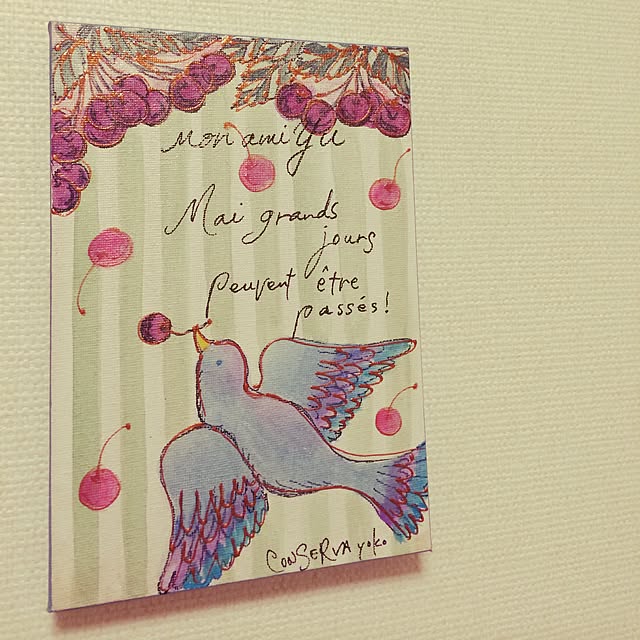 Mon ami Yu
Mai grands
jours
peuvent être
passés!
CONSERVA yoko